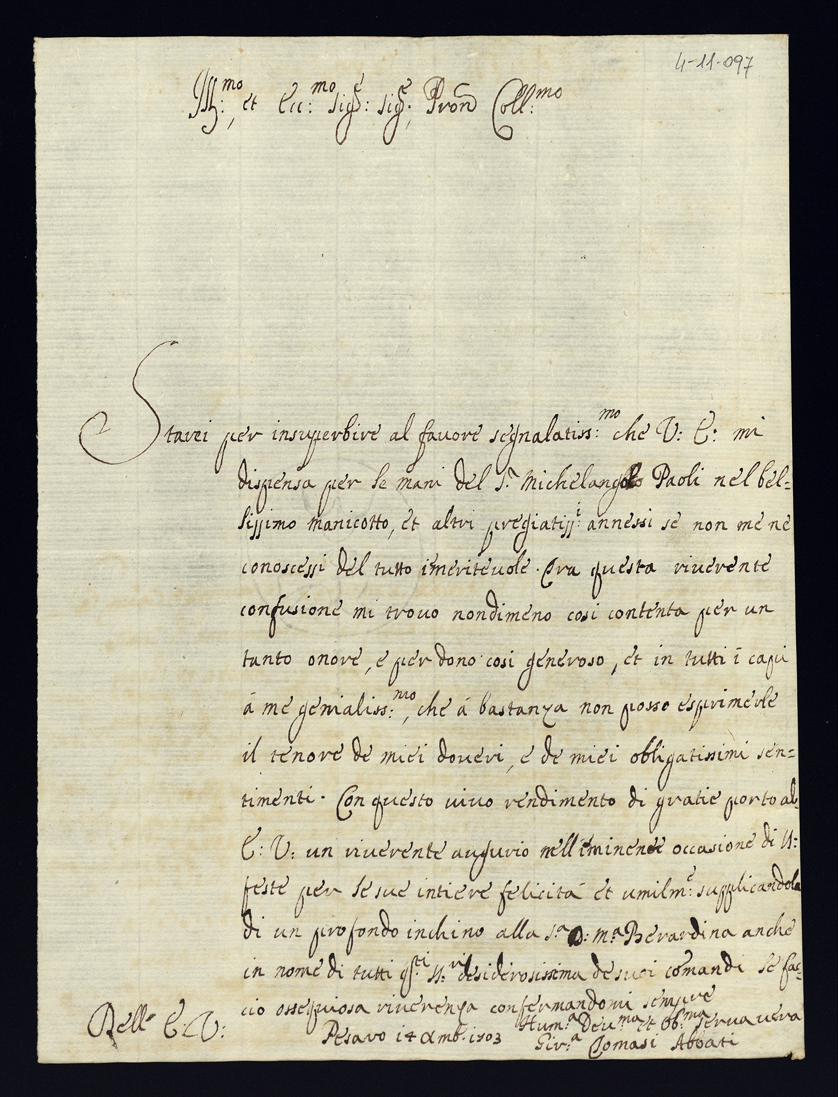 4-11-097
Ill:mo, et Ecc:mo Sig:e Sig:e, Pron Coll:mo
Starei per insuperbire al favore segnalatiss:mo che V: E: mi
dispensa per le mani del S.r Michelangolo Paoli nel bel=
lissimo manicotto, et altri pregiatiss:i annessi se non me ne
conoscessi del tutto imeritevole. Tra questa riverente
confusione mi trovo nondimeno cosi contenta per un
tanto onore, e per dono cosi generoso, et in tutti i capi
á me genialiss:mo, che á bastanza non posso esprimerle
il tenore de miei doveri, e de miei obligatissimi sen=
timenti. Con questo vivo rendimento di gratie porto al
E: V: un riverente augurio nell'iminente occasione di N:
feste per le sue intiere felicitá et umilm:e supplicandola
di un profondo inchino alla S.a D: M.a Berardina anche
in nome di tutti q.sti N:ri desiderosissima de suoi comandi le fac=
cio ossequiosa riverenza confermandomi sempre
Dell' E: V:
Pesaro 14 Xmb. 1703
Hum.a Dev.ma et Ob.ma serva vera
Gir.a Tomasi Abbati